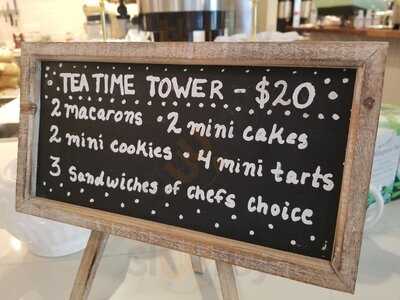 TEA TIME TOWER - $20
2 macarons · 2 mini cakes
2 mini cookies · 4 mini tarts
3 Sandwiches of chefs choice